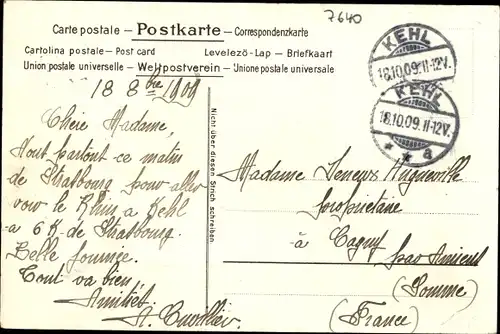 7640
Carte postale - Postkarte - Correspondenzkarte
Cartolina postale - Post card Levelező-Lap - Briefkaart
Union postale universelle - Weltpostverein - Unione postale universale
KEHL
18.10.09.11-12V.
KEHL
18.10.09.11-12V.
* * a
18 8bre 1909
Chère Madame,
Nous partons ce matin
de Strasbourg pour aller
voir le Rhin à Kehl
à 6 K. de Strasbourg.
Belle journée.
Tout va bien,
Amitiés
A. Cuvillier
Nicht über diesen Strich schreiben
Madame
propriétaire
à Cagny par Amiens
(Somme)
(France)